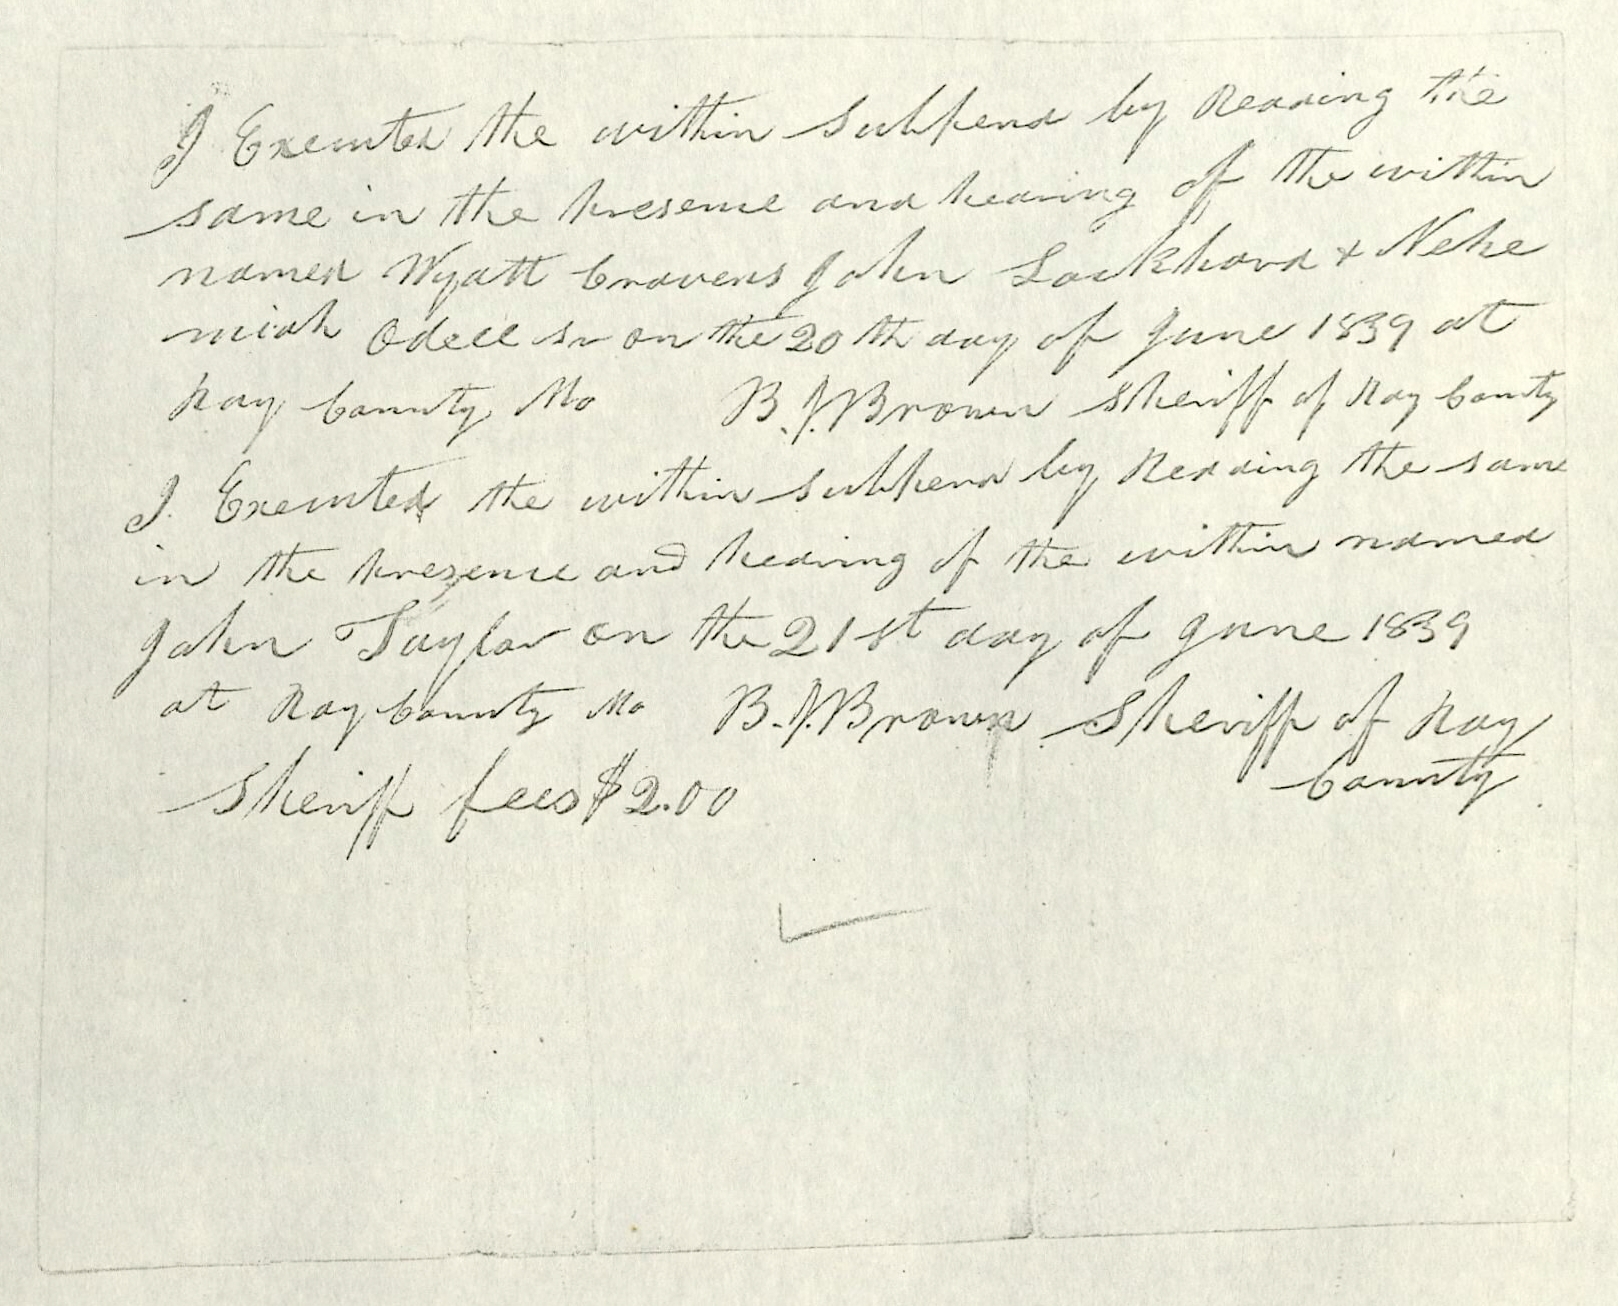 I Executed the within Subpena by Reading the
same in the presence and hearing of the within
named Wyatt Cravens John Lockhard & Nehe
miah Odell sr on the 20th day of June 1839 at
Ray County Mo B. J. Brown Sheriff of Ray County
I. Executed the within subpena by Reading the same
in the presence and hearing of the within named
John Taylor on the 21st day of June 1839
at Ray County Mo B. J. Brown Sheriff of Ray
County
Sheriff fees $2.00